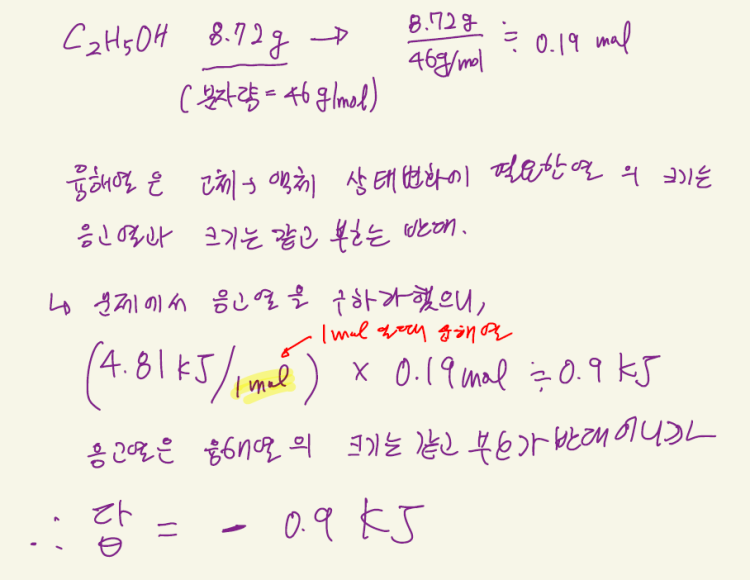 C₂H₅OH 8.72g → 8.72g / 46g/mol ≒ 0.19 mol
(분자량 = 46 g/mol)
융해열은 고체→액체 상태변화에 필요한 열의 크기는
응고열과 크기는 같고 부호는 반대.
↳ 문제에서 응고열을 구하라 했으니,
1mol 일때 융해열
(4.81 kJ/1mol) × 0.19 mol ≒ 0.9 kJ
응고열은 융해열의 크기는 같고 부호가 반대이니까
∴ 답 = - 0.9 kJ